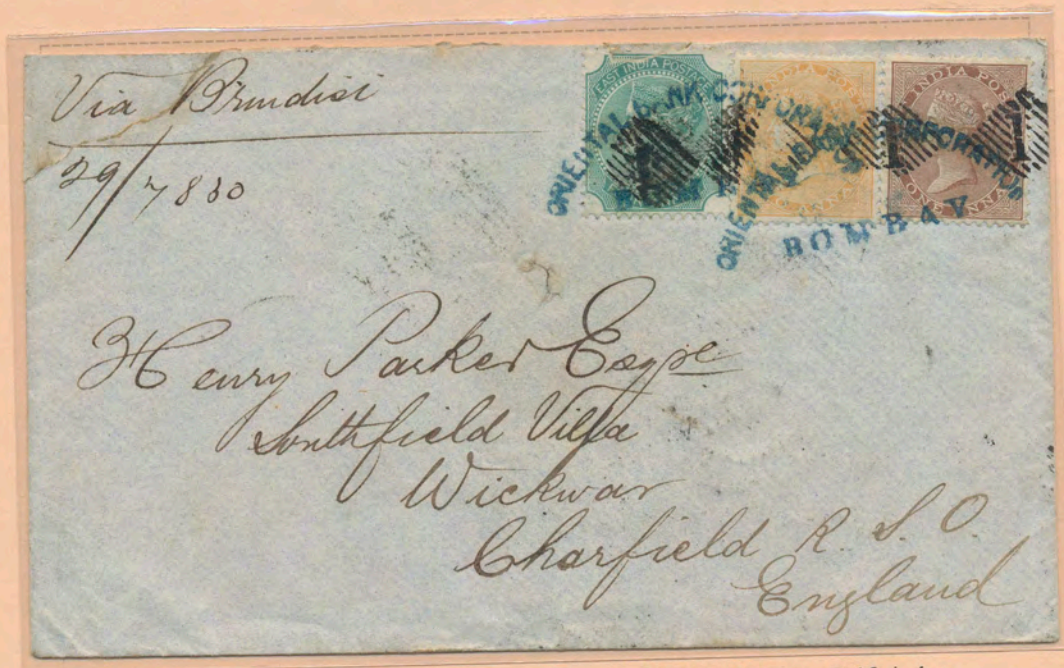 Via Brindisi
29/7 880
EAST INDIA POSTAGE
INDIA POS
INDIA POS
ORIENTAL BANK CORPORATION
ORIENTAL BANK CORPORATION
BOMBAY
ONE ANNA
1
1
Henry Parker Esqre
Southfield Villa
Wickwar
Charfield R. S. O.
England